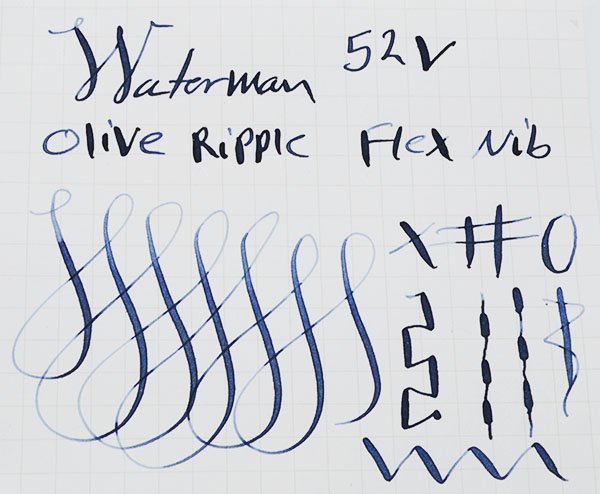 Waterman 52V
Olive Ripple Flex Nib
x # 0